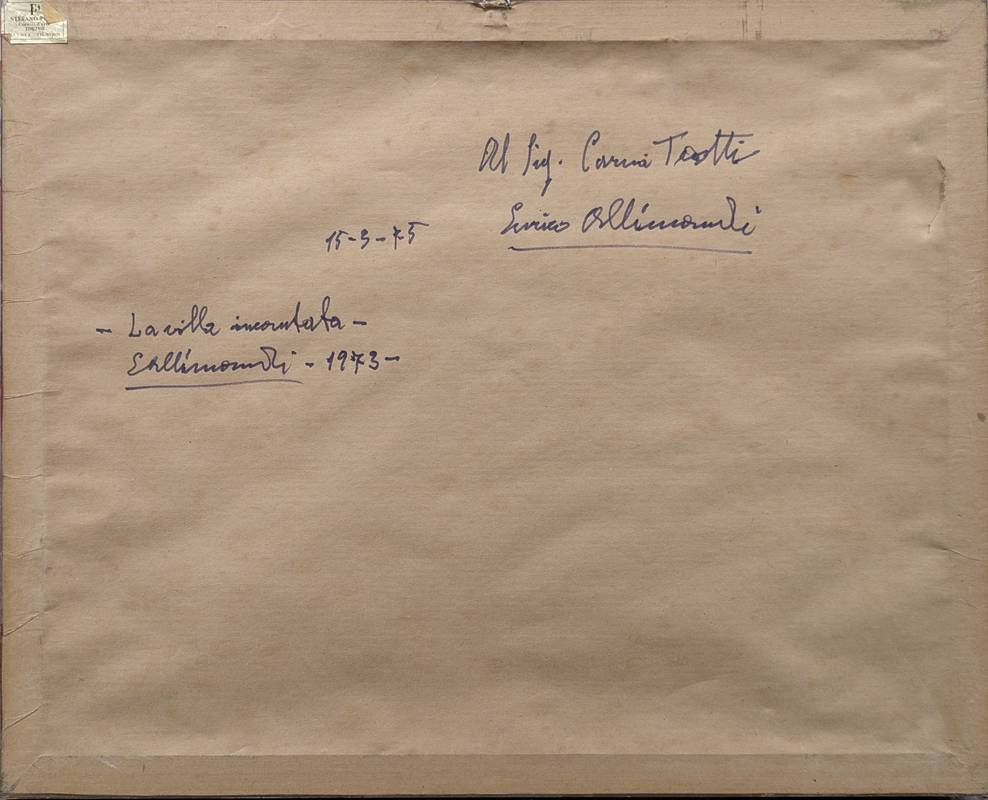 Al Sig. Carmi Trotti
Enrico Allimandi
15-3-75
- La villa incantata -
EAllimandi - 1973 -
TORINO